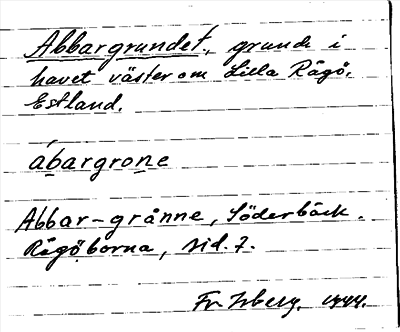 Abbargrundet, grund i
havet väster om Lilla Rågö,
Estland.
ábargrone
Abbar-grånne, Söderbäck.
Rågöborna, sid. 7.
Fr 1944.